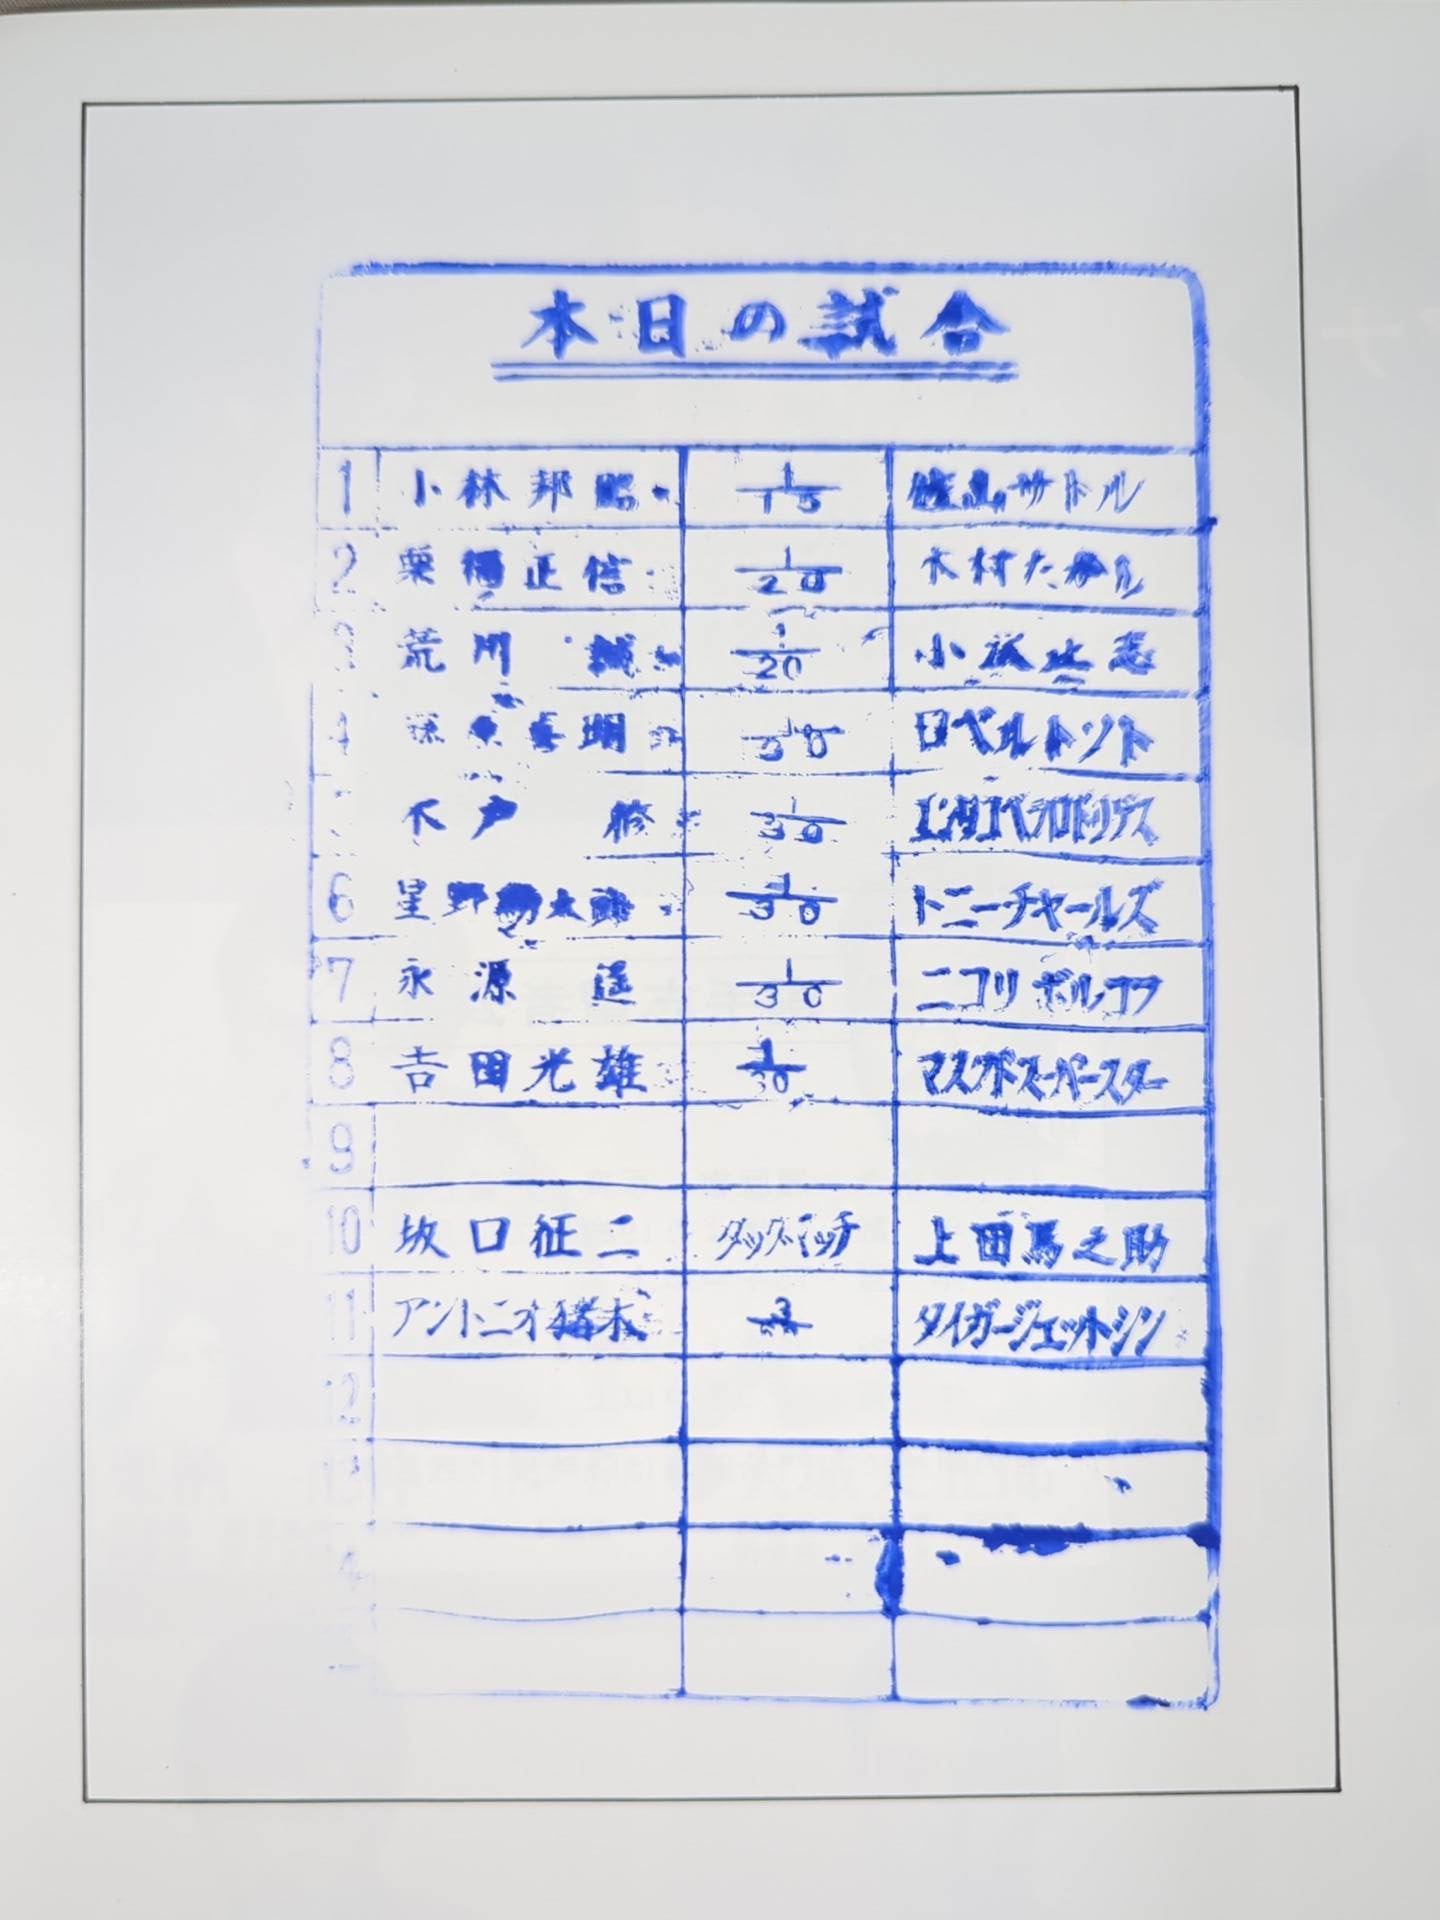 本日の試合
1 小林邦昭 1/15 佐山サトル
2 栗栖正信 1/20 木村たかし
3 荒川 誠 1/20 小沢正志
4 藤原喜明 1/30 ロベルトソト
木戸 修 1/30 エンリケベラ
6 星野勘太郎 1/30 トニーチャールズ
7 永源 遥 1/30 ニコリボルコフ
8 吉田光雄 1/30 マスクドスーパースター
9
10 坂口征二 タッグマッチ 上田馬之助
11 アントニオ猪木 3 タイガージェットシン
12
13
14